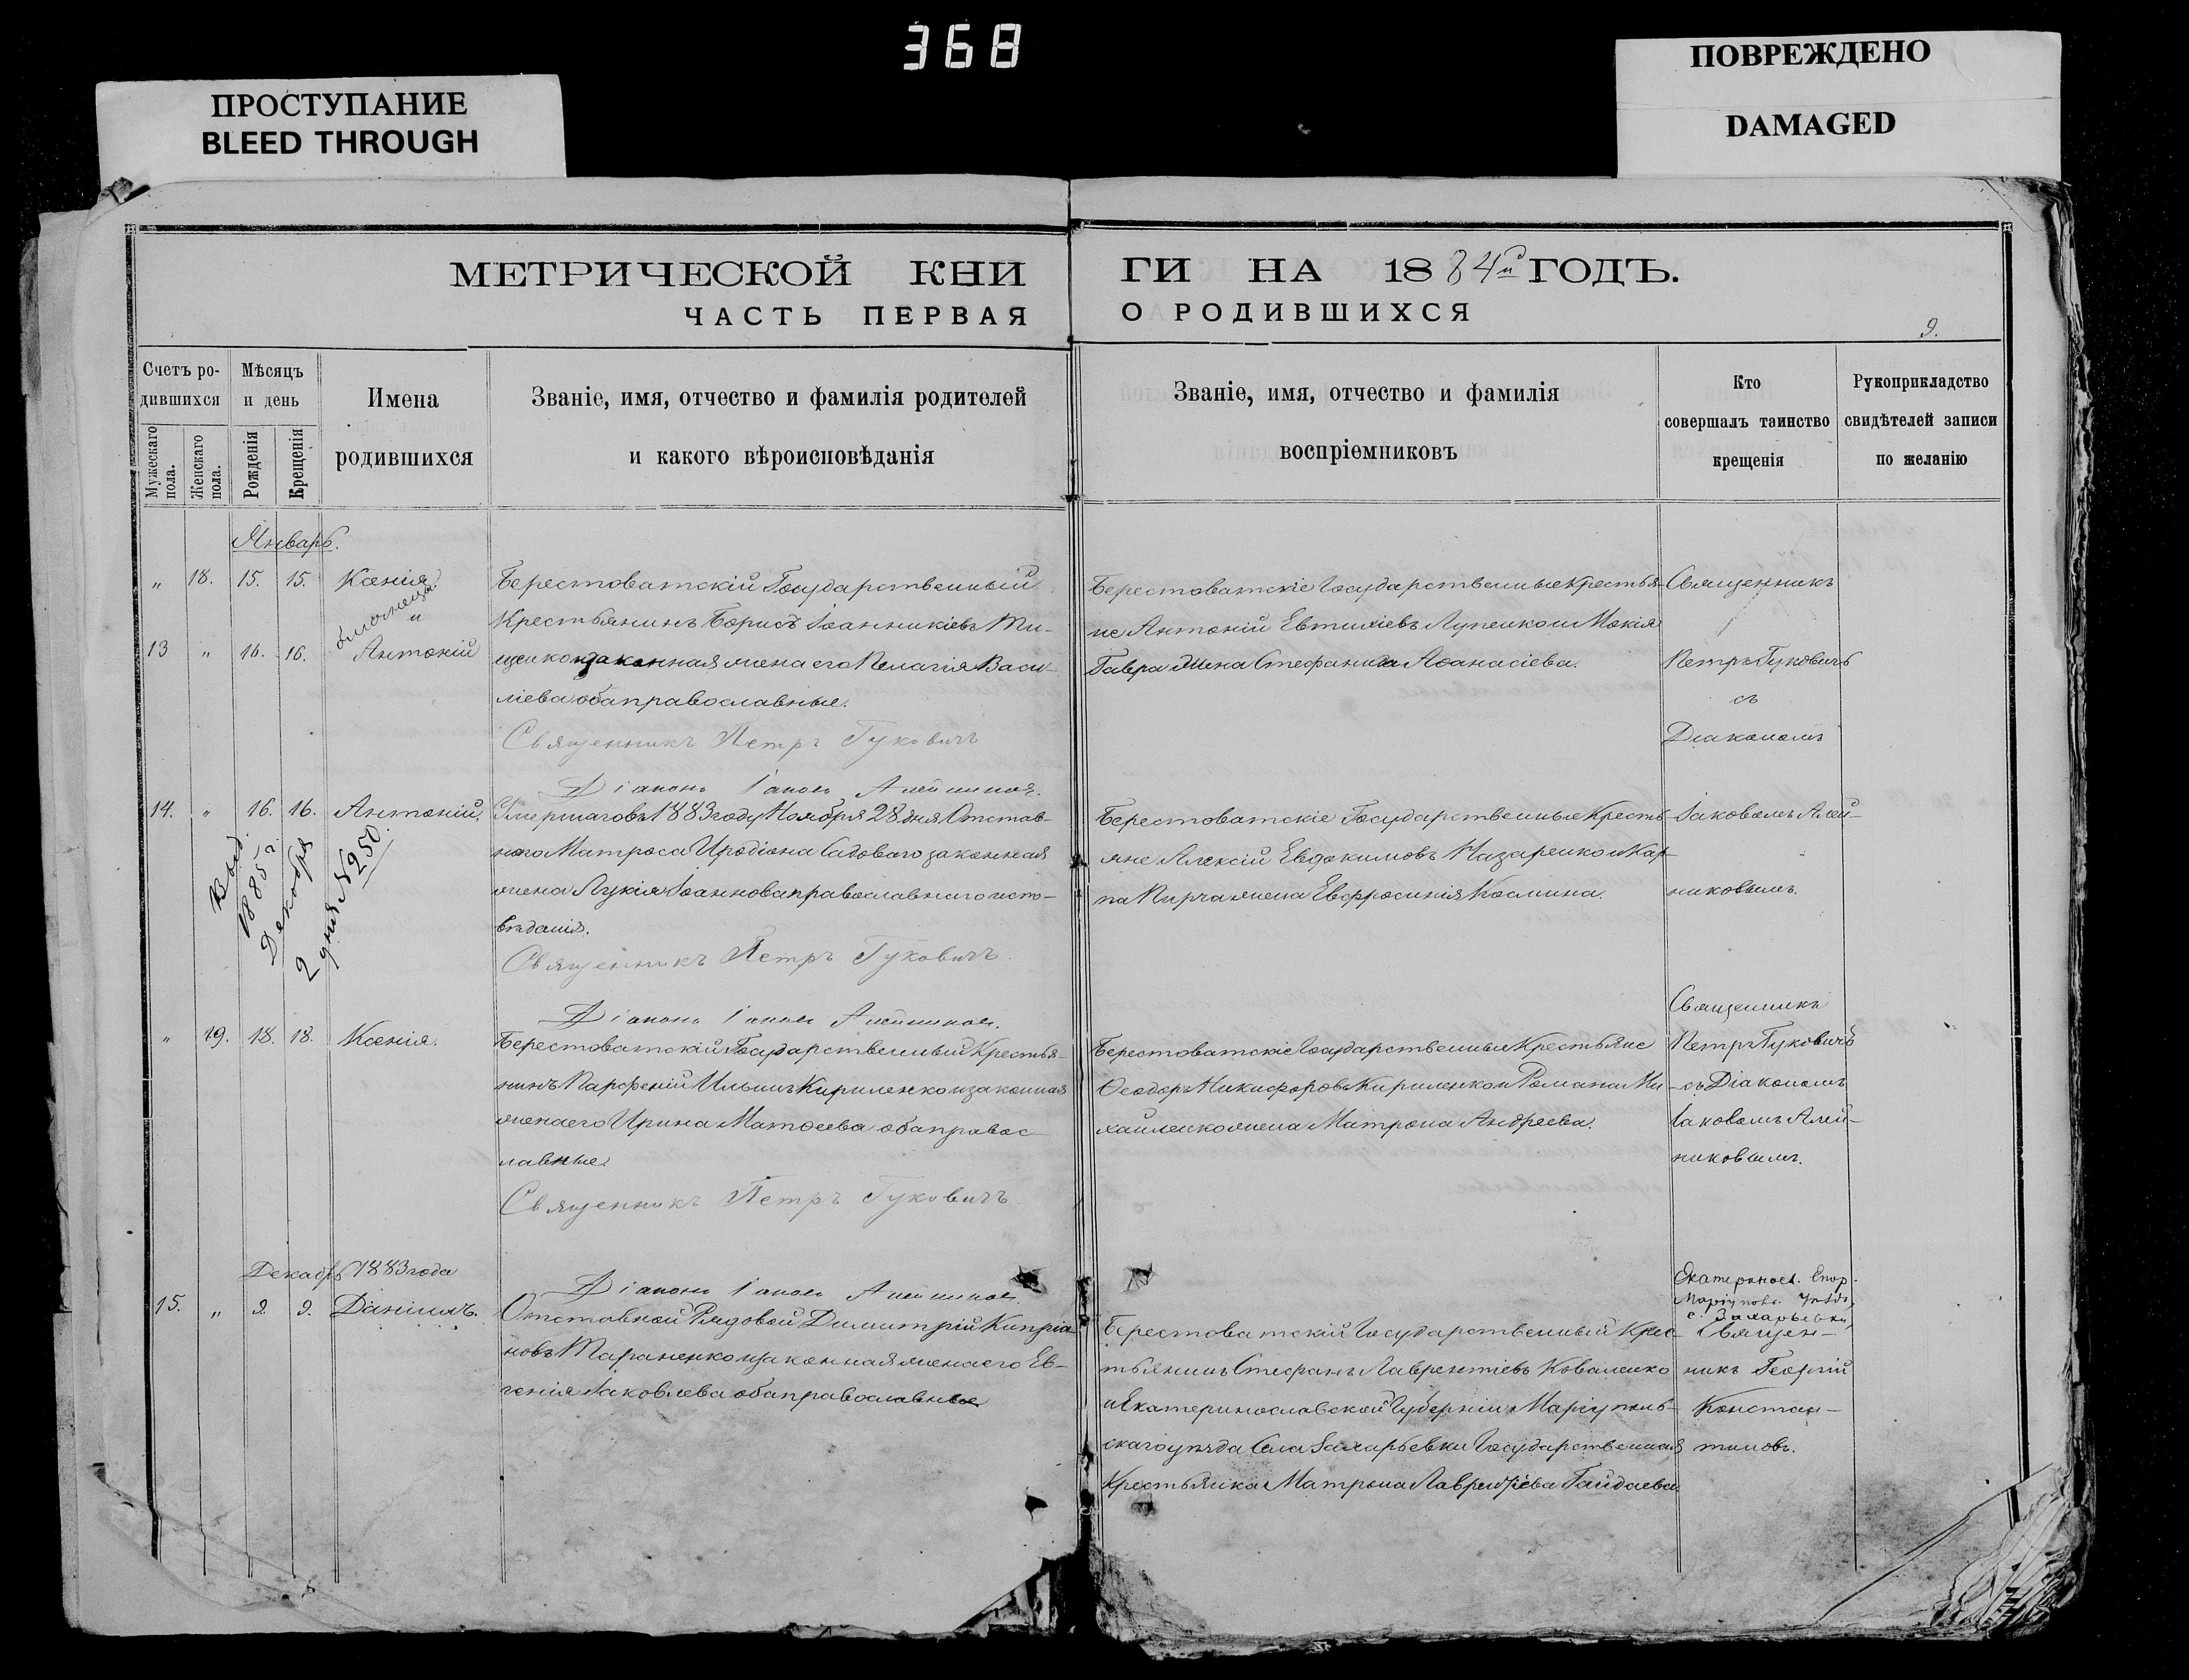 368
ПРОСТУПАНИЕ
BLEED THROUGH
ПОВРЕЖДЕНО
DAMAGED
МЕТРИЧЕСКОЙ КНИ
ГИ НА 1884й ГОДЪ.
ЧАСТЬ ПЕРВАЯ
О РОДИВШИХСЯ
9.
Счетъ ро-
дившихся
Мужескаго пола.
Женскаго пола.
Мѣсяцъ
и день
Рожденія
Крещенія
Имена
родившихся
Званіе, имя, отчество и фамилія родителей
и какого вѣроисповѣданія
Званіе, имя, отчество и фамилія
воспріемниковъ
Кто
совершалъ таинство
крещенія
Рукоприкладство
свидѣтелей записи
по желанію
Январь.
„ 18. 15. 15. Ксенія
близнецы
и
13 „ 16. 16. Антоній
Берестоватскій Государственный
Крестьянинъ Борисъ Іоанникіевъ Ти-
щенко и законная жена его Пелагія Васи-
ліева оба православные.
Священникъ Петръ Гуковичъ
Діаконъ Іаковъ Алейниковъ.
Берестоватскіе Государственные Крестья-
не Антоній Евтихіевъ Лупенко и Мокія
Гавра жена Стефанида Аѳанасіева.
Священникъ
Петръ Гуковичъ
съ
Діакономъ
14. „ 16. 16. Антоній,
Умершаго въ 1883 году Ноября 28 дня Отстав-
наго Матроса Иродіона Садоваго законная
жена Лукія Іоаннова православнаго испо-
вѣданія.
Священникъ Петръ Гуковичъ.
Діаконъ Іаковъ Алейниковъ.
Выд.
1885 г.
Декабря
2 дня №250.
Берестоватскіе Государственные Кресть-
яне Алексій Евдокимовъ Назаренко и Кар-
па Пирча жена Евфросинія Космина.
Іаковомъ Алей-
никовымъ.
„ 19. 18. 18. Ксенія.
Берестоватскій Государственный Крестья-
нинъ Парфеній Ильинъ Кириленко и законная
жена его Ирина Матѳеева оба правос-
лавные.
Священникъ Петръ Гуковичъ
Діаконъ Іаковъ Алейниковъ.
Берестоватскіе Государственные Крестьяне
Ѳеодоръ Никифоровъ Кириленко и Романа Ми-
хайленко жена Матрона Андреева.
Священникъ
Петръ Гуковичъ
съ Діакономъ
Іаковомъ Алей-
никовымъ.
Декабрь 1883 года
15. „ 9. 9. Даніилъ.
Отставной Рядовой Димитрій Кипріа-
новъ Тараненко и законная жена его Ев-
генія Іаковлева оба православные
Берестоватскій Государственный Крес-
тьянинъ Стефанъ Лаврентіевъ Коваленко
и Екатеринославской Губерніи Маріуполь-
скаго уѣзда Села Захарьевки Государственная
Крестьянка Матрона Лаврентіева Гайдаева
Екатеринос. Епар.
Маріупол. Уѣзда,
с. Захарьевки,
Священ-
никъ Георгій
Констан-
тиновъ.